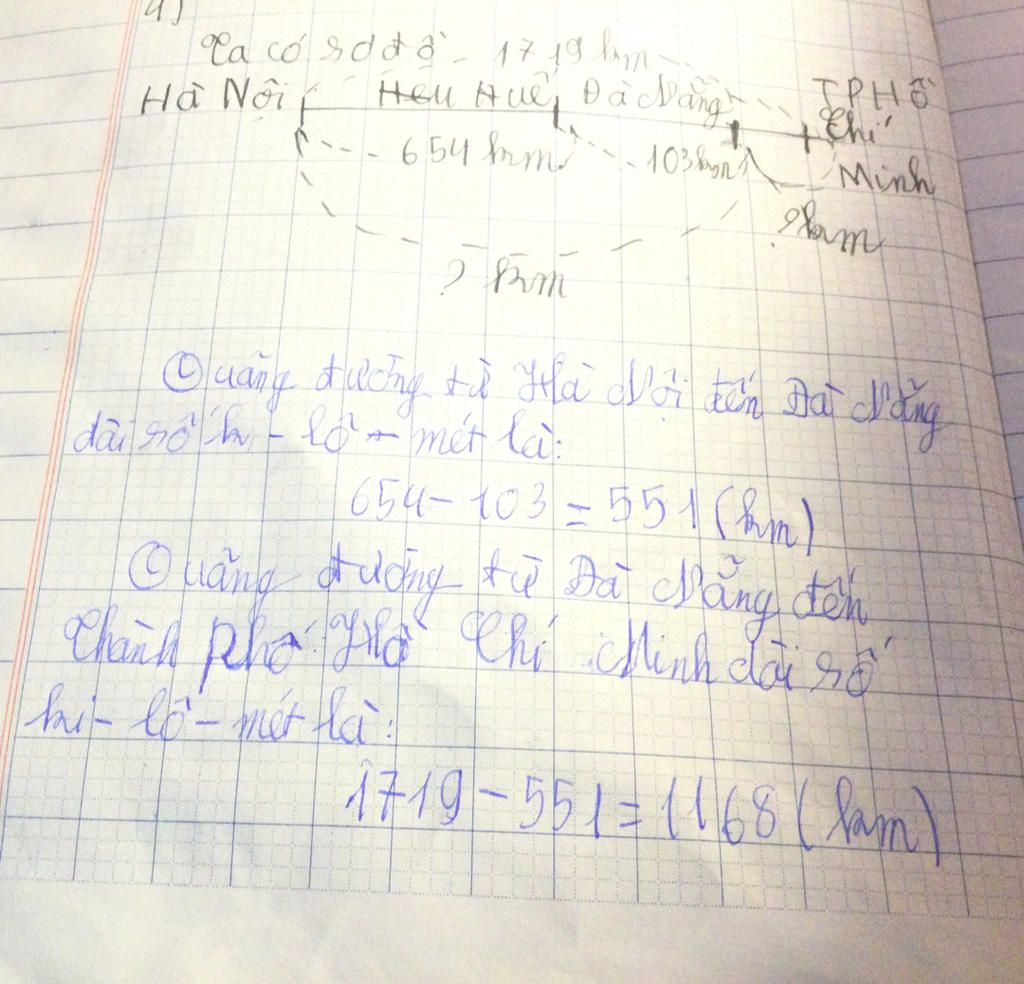 4)
Ta có sơ đồ 1719 km
Hà Nội Heu Huế Đà Nẵng TP Hồ
Chí
654 km 103 km Minh
? km
? km
Quãng đường từ Hà Nội đến Đà Nẵng
dài số ki - lô - mét là:
654 - 103 = 551 (km)
Quãng đường từ Đà Nẵng đến
Thành phố Hồ Chí Minh dài số
ki - lô - mét là:
1719 - 551 = 1168 (km)